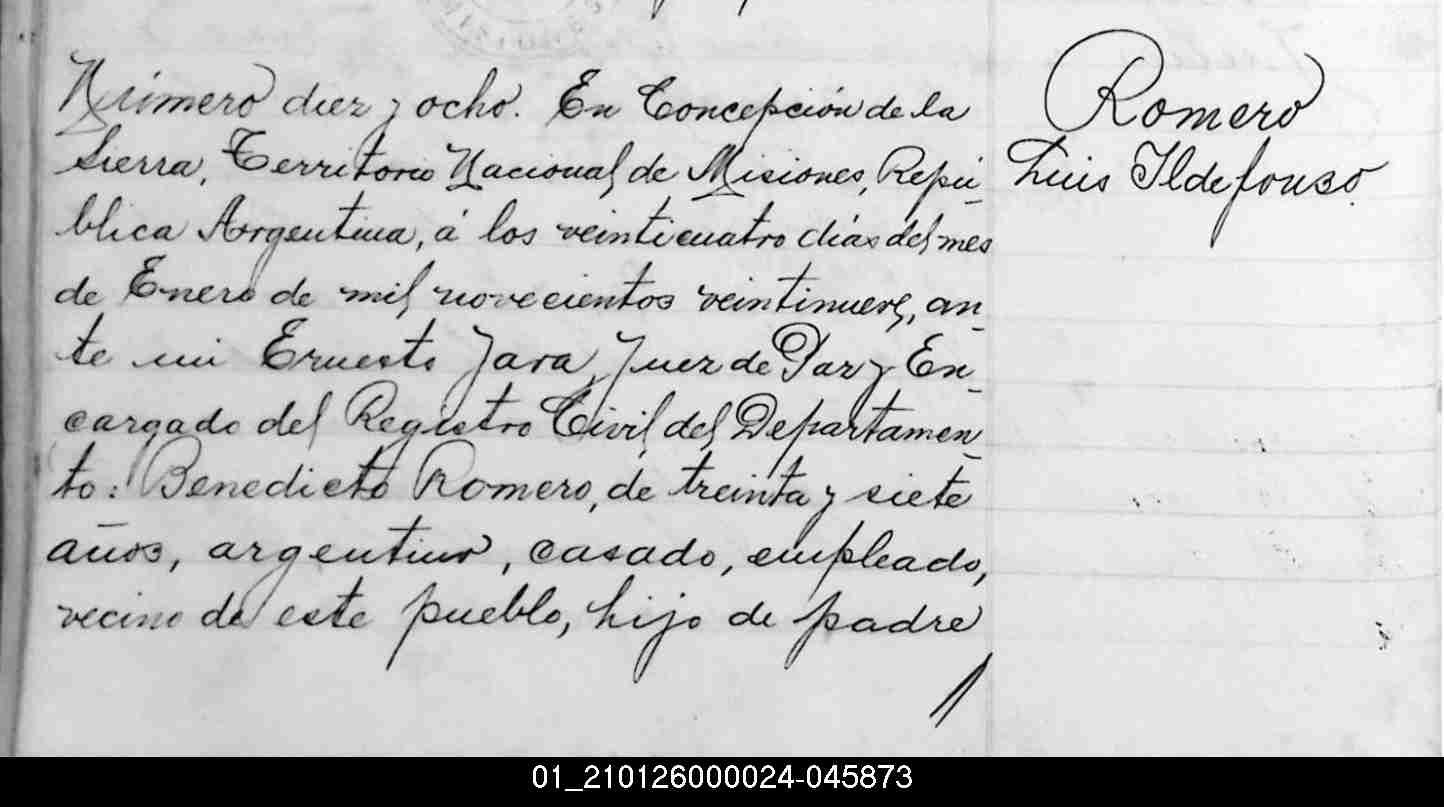 Número diez y ocho. En Concepción de la
Sierra, Territorio Nacional de Misiones, Repú-
blica Argentina, á los veinticuatro días del mes
de Enero de mil novecientos veintinueve, an-
te mi Ernesto Jara, Juez de Paz y En-
cargado del Registro Civil del Departamen-
to: Benedicto Romero, de treinta y siete
años, argentino, casado, empleado,
vecino de este pueblo, hijo de padre
Romero
Luis Ildefonso.
01_210126000024-045873